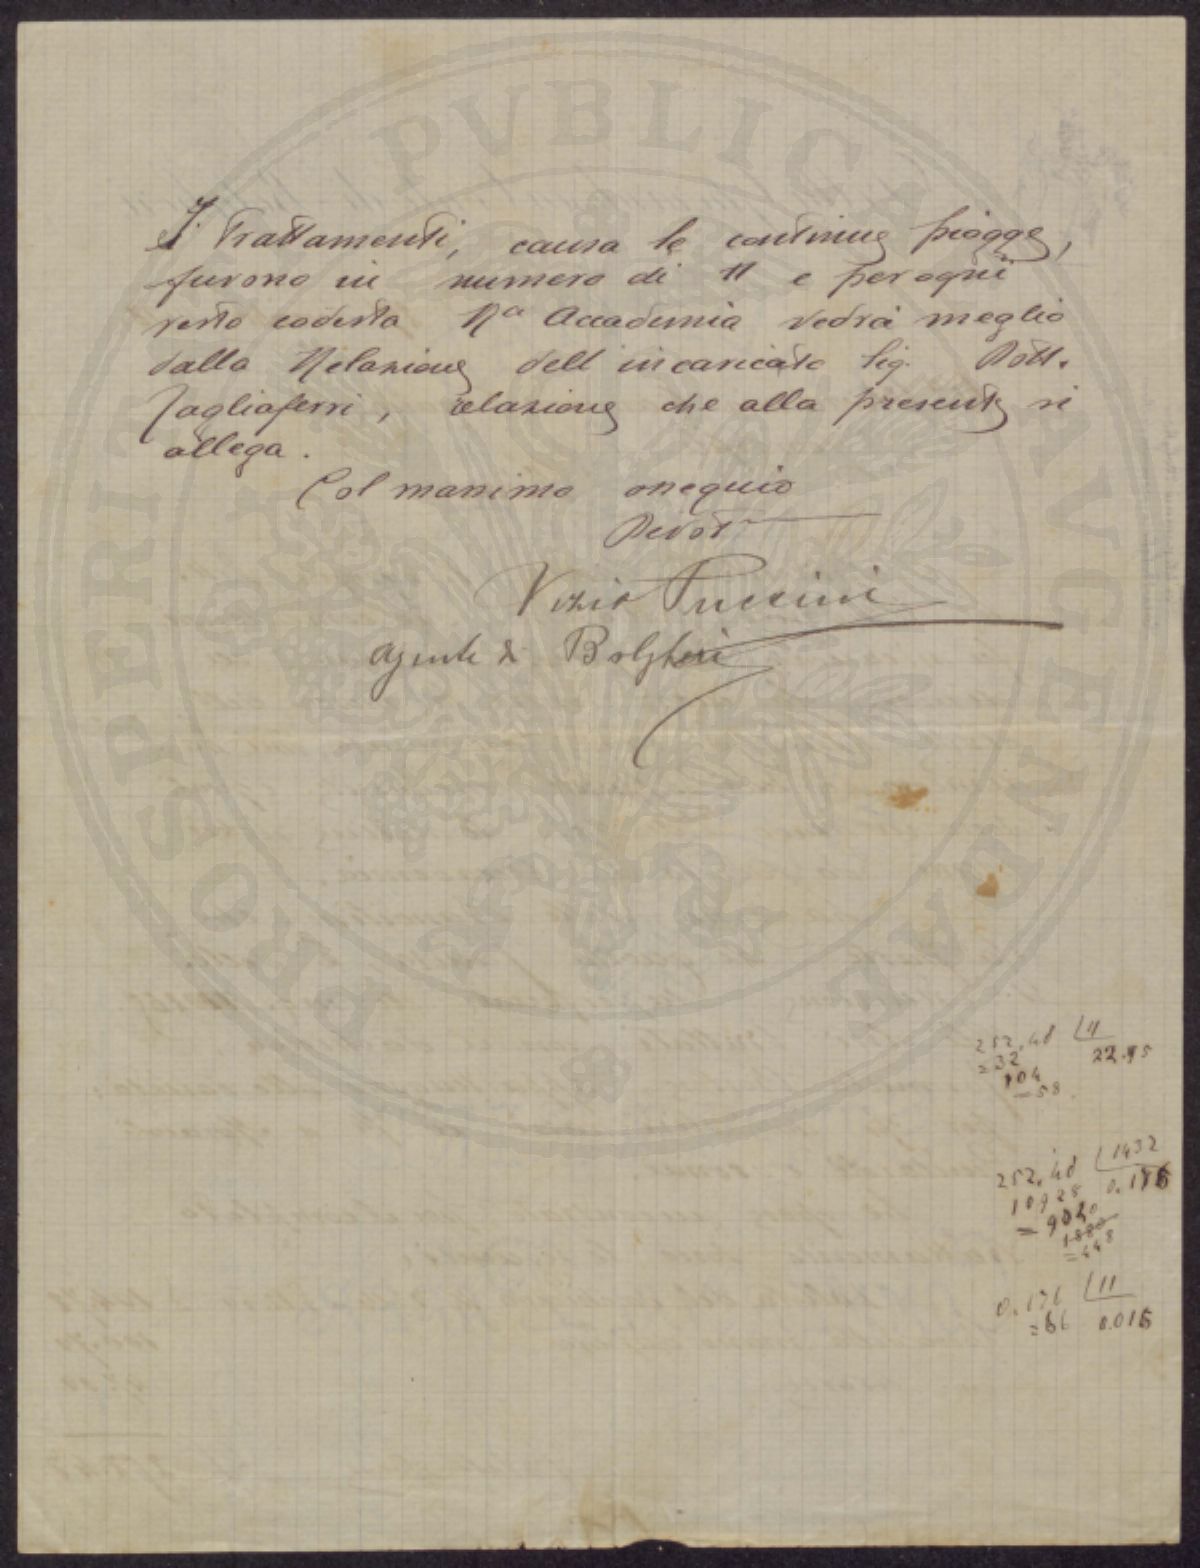 I Trattamenti, causa le continue pioggie,
furono in numero di 11 e per ogni
resto codesta Rª Accademia vedrà meglio
dalla Relazione dell'incaricato Sig. Dott.
Tagliaferri, relazione che alla presente si
allega.
Col massimo ossequio
Devot
Vizio Puccini
Agente di Bolgheri
252,48 11
=32 22.95
104
=58
252,48 1432
10928 0.176
=9040
=448
0.176 11
=66 0.016
PROSPERITATI PVBLICAE AVGENDAE